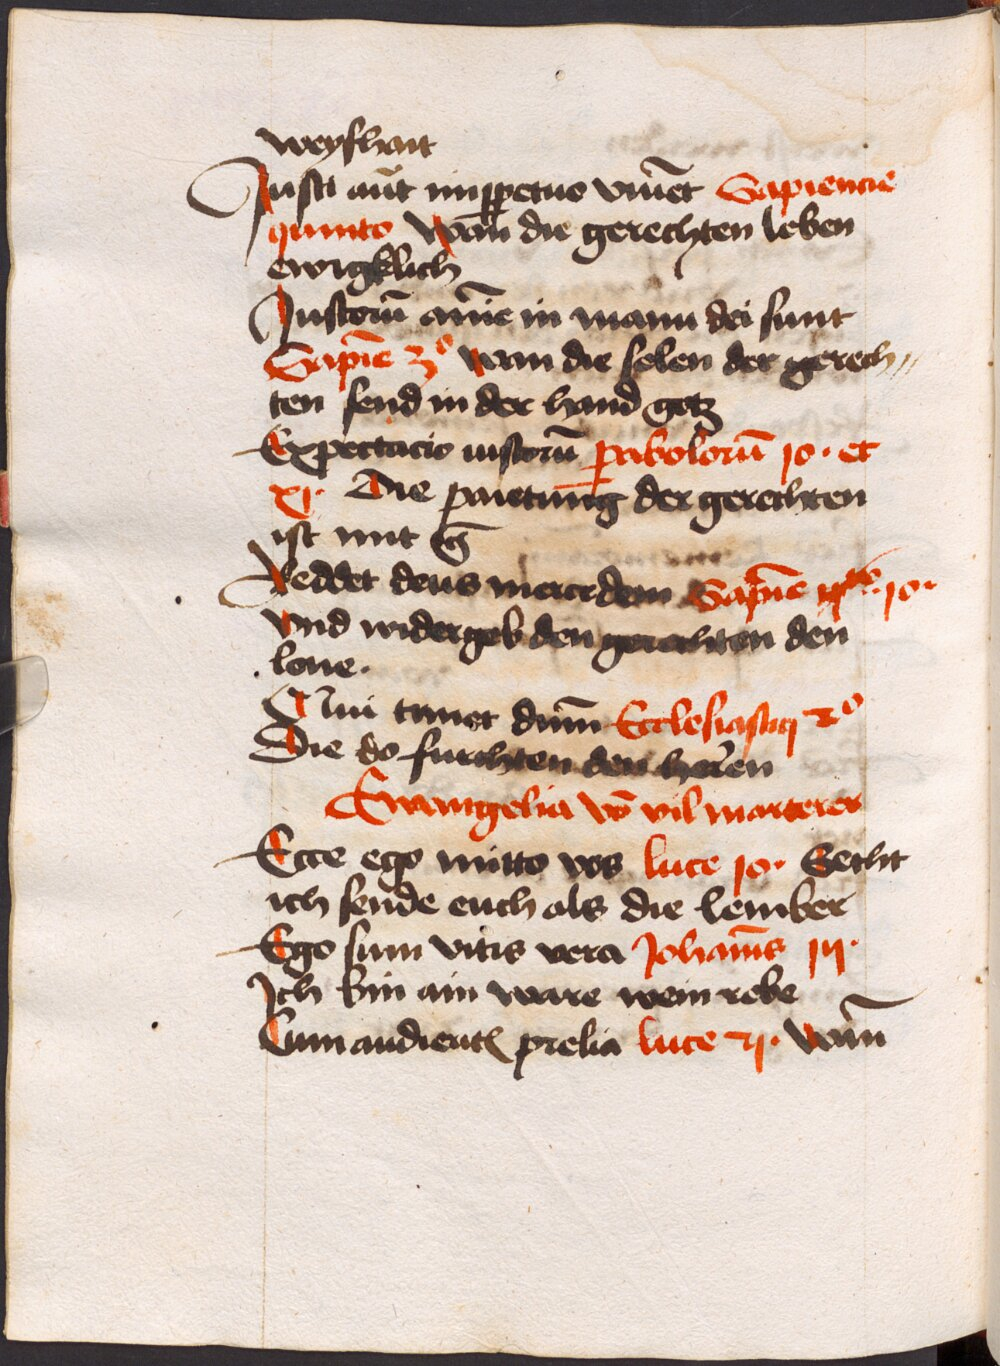 weyshait
Justi aūt imꝑpetuo viuēt Sapiencie
quinto Wān die gerechten leben
ewigklich
Justorū aīe in manu dei sunt
Sapiē 3º wan die selen der gerech〃
ten send in der hand gotz
Expectacio iustorū ꝑabolorū 10 · et
xj · Die paietūng der gerechten
ist mit
Reddet deus mercedem Sapiē 10 ·
vnd widergeb den gerechten den
lone ·
Qui timet dnm̄ Ecclesiastici 2º
Die do furchten den herren
Ewangelia vō vil marterer
Ecce ego mitto vos luce 10 · Secht
ich sende euch als die lember
Ego sum vitis vera Johanīs
Ich bin ain ware wein rebe
Cum audieritꝭ prelia luce 21 · Wān